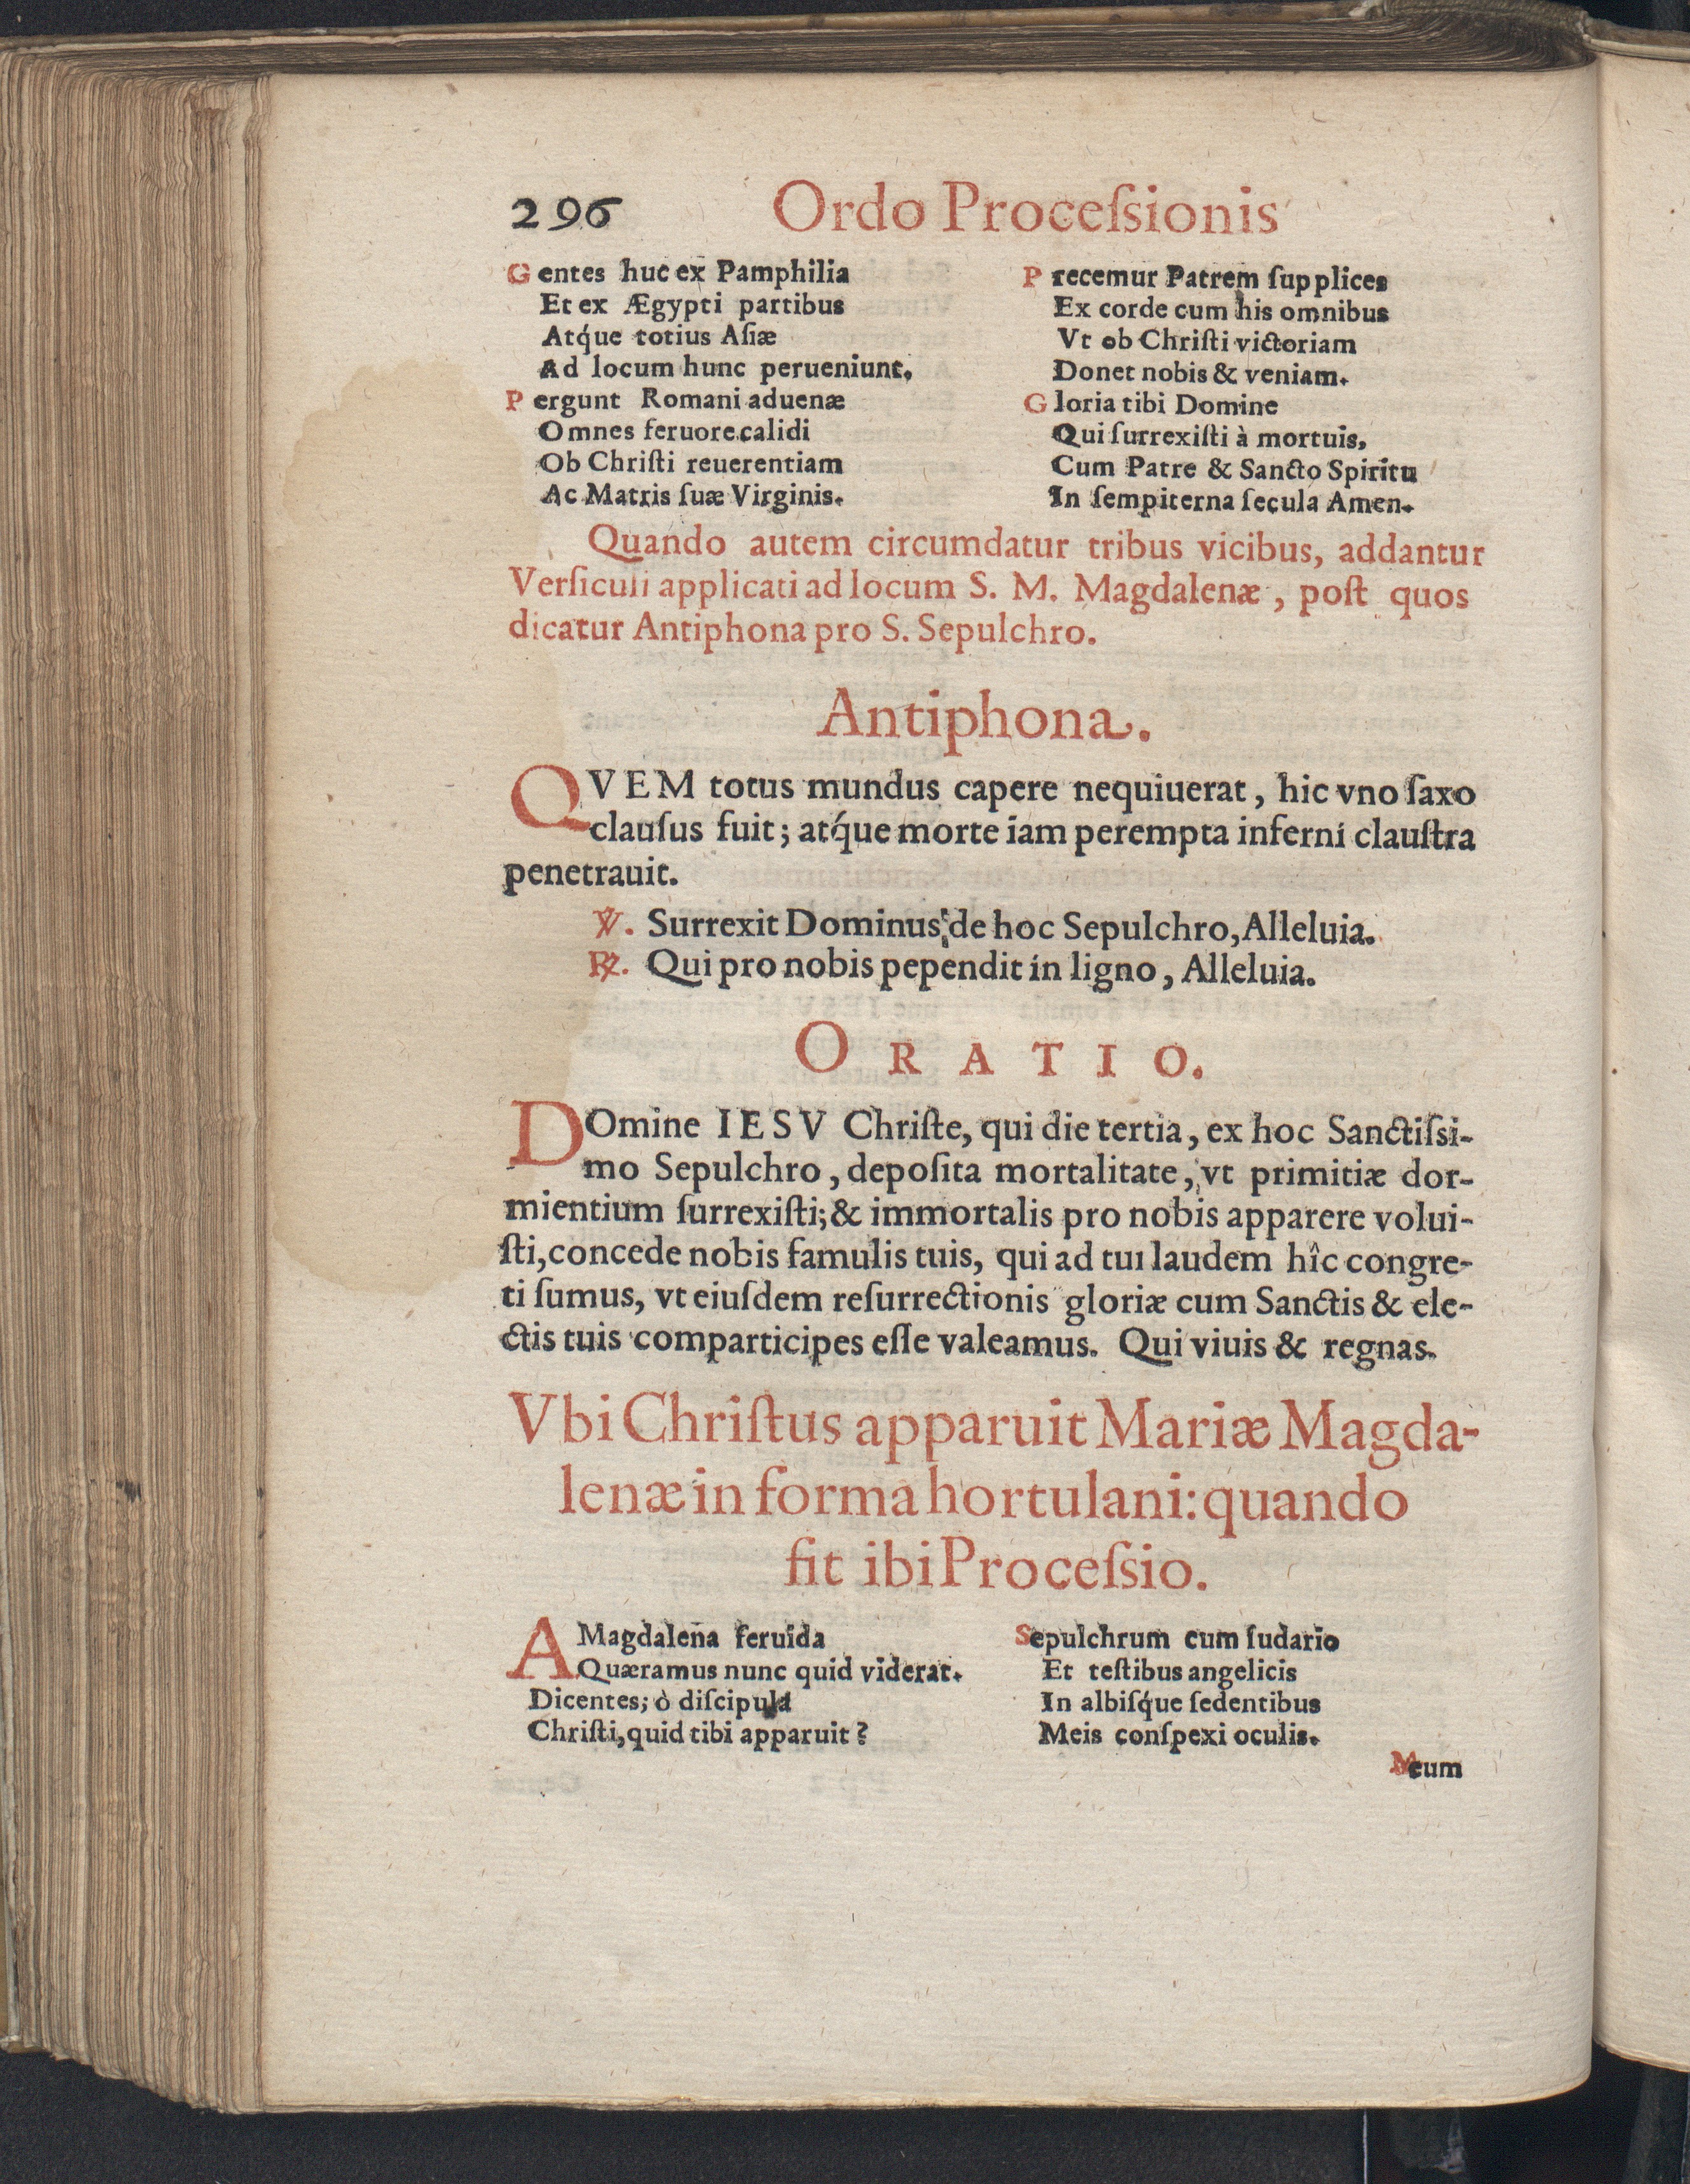 296 Ordo Proceſsionis
Gentes huc ex Pamphilia
Et ex Ægypti partibus
Atq́ue totius Aſiæ
Ad locum hunc perueniunt.
Pergunt Romani aduenæ
Omnes feruore calidi
Ob Chriſti reuerentiam
Ac Matris ſuæ Virginis.
Precemur Patrem ſupplices
Ex corde cum his omnibus
Vt ob Chriſti victoriam
Donet nobis & veniam.
Gloria tibi Domine
Qui ſurrexiſti à mortuis,
Cum Patre & Sancto Spiritu
In ſempiterna ſecula Amen.
Quando autem circumdatur tribus vicibus, addantur
Verſiculi applicati ad locum S. M. Magdalenæ, poſt quos
dicatur Antiphona pro S. Sepulchro.
Antiphona.
QVEM totus mundus capere nequiuerat, hic vno ſaxo
clauſus fuit; atq́ue morte iam perempta inferni clauſtra
penetrauit.
℣. Surrexit Dominus de hoc Sepulchro, Alleluia.
℟. Qui pro nobis pependit in ligno, Alleluia.
ORATIO.
DOmine IESV Chriſte, qui die tertia, ex hoc Sanctiſsi-
mo Sepulchro, depoſita mortalitate, vt primitiæ dor-
mientium ſurrexiſti; & immortalis pro nobis apparere volui-
ſti, concede nobis famulis tuis, qui ad tui laudem hîc congre-
ti ſumus, vt eiuſdem reſurrectionis gloriæ cum Sanctis & ele-
ctis tuis comparticipes eſſe valeamus. Qui viuis & regnas.
Vbi Chriſtus apparuit Mariæ Magda-
lenæ in forma hortulani: quando
fit ibi Proceſsio.
A Magdalena feruida
Quæramus nunc quid viderat.
Dicentes; ò diſcipula
Chriſti, quid tibi apparuit?
Sepulchrum cum ſudario
Et teſtibus angelicis
In albiſq́ue ſedentibus
Meis conſpexi oculis.
Meum